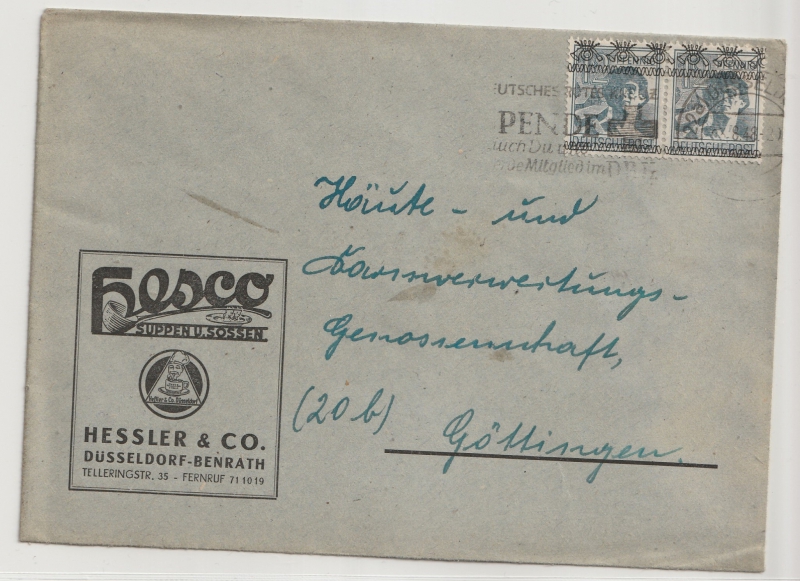 EUTSCHES ROTES KREUZ
PENDE
auch Du
Mitglied im DRK
DEUTSCHE POST DEUTSCHE POST
Häute - und
Darmverwertungs-
Genossenschaft,
(20b) Göttingen.
hesco
SUPPEN U. SOSSEN
Heßler & Co. Düsseldorf
HESSLER & CO.
DÜSSELDORF-BENRATH
TELLERINGSTR. 35 - FERNRUF 711019